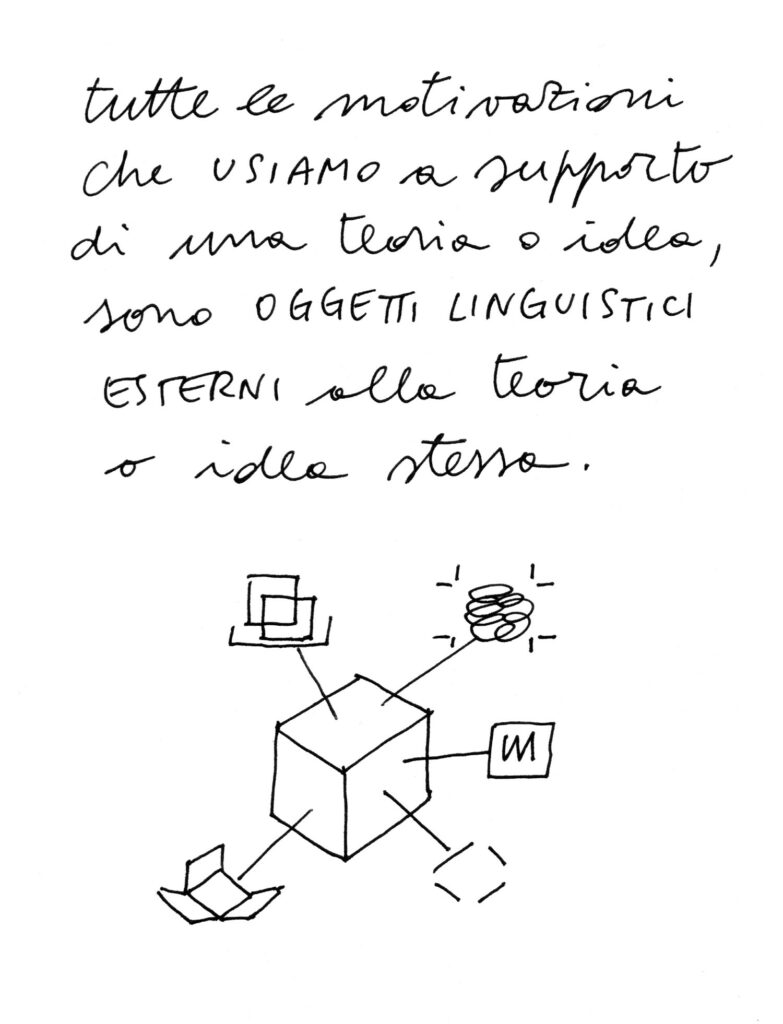 tutte le motivazioni
che USIAMO a supporto
di una teoria o idea,
sono OGGETTI LINGUISTICI
ESTERNI alla teoria
o idea stessa.